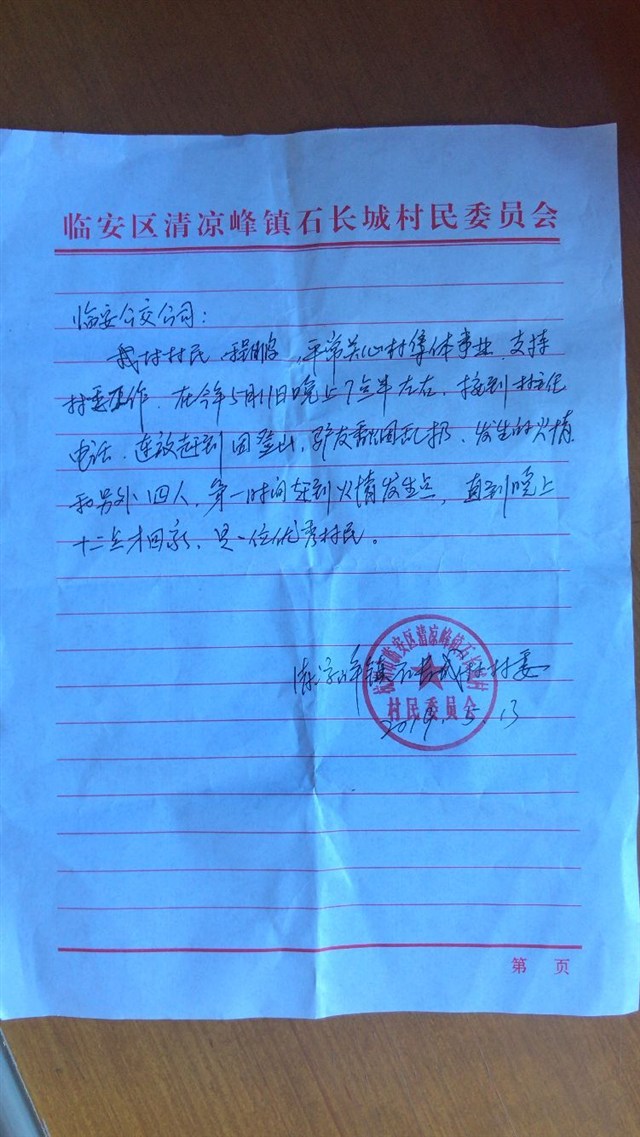 临安区清凉峰镇石长城村民委员会
临安公交公司：
我村村民 程鹏，平常关心村集体事业、支持
村委工作。在今年5月11日晚上7点半左右，接到村主任
电话、连夜赶到因登山，驴友烟乱扔、发生的火情
和另外四人，第一时间赶到火情发生点，直到晚上
十二点才回家，是一位优秀村民。
清凉峰镇石长城村村委
临安区清凉峰镇石长城村
村民委员会
2019.5.13
第 页